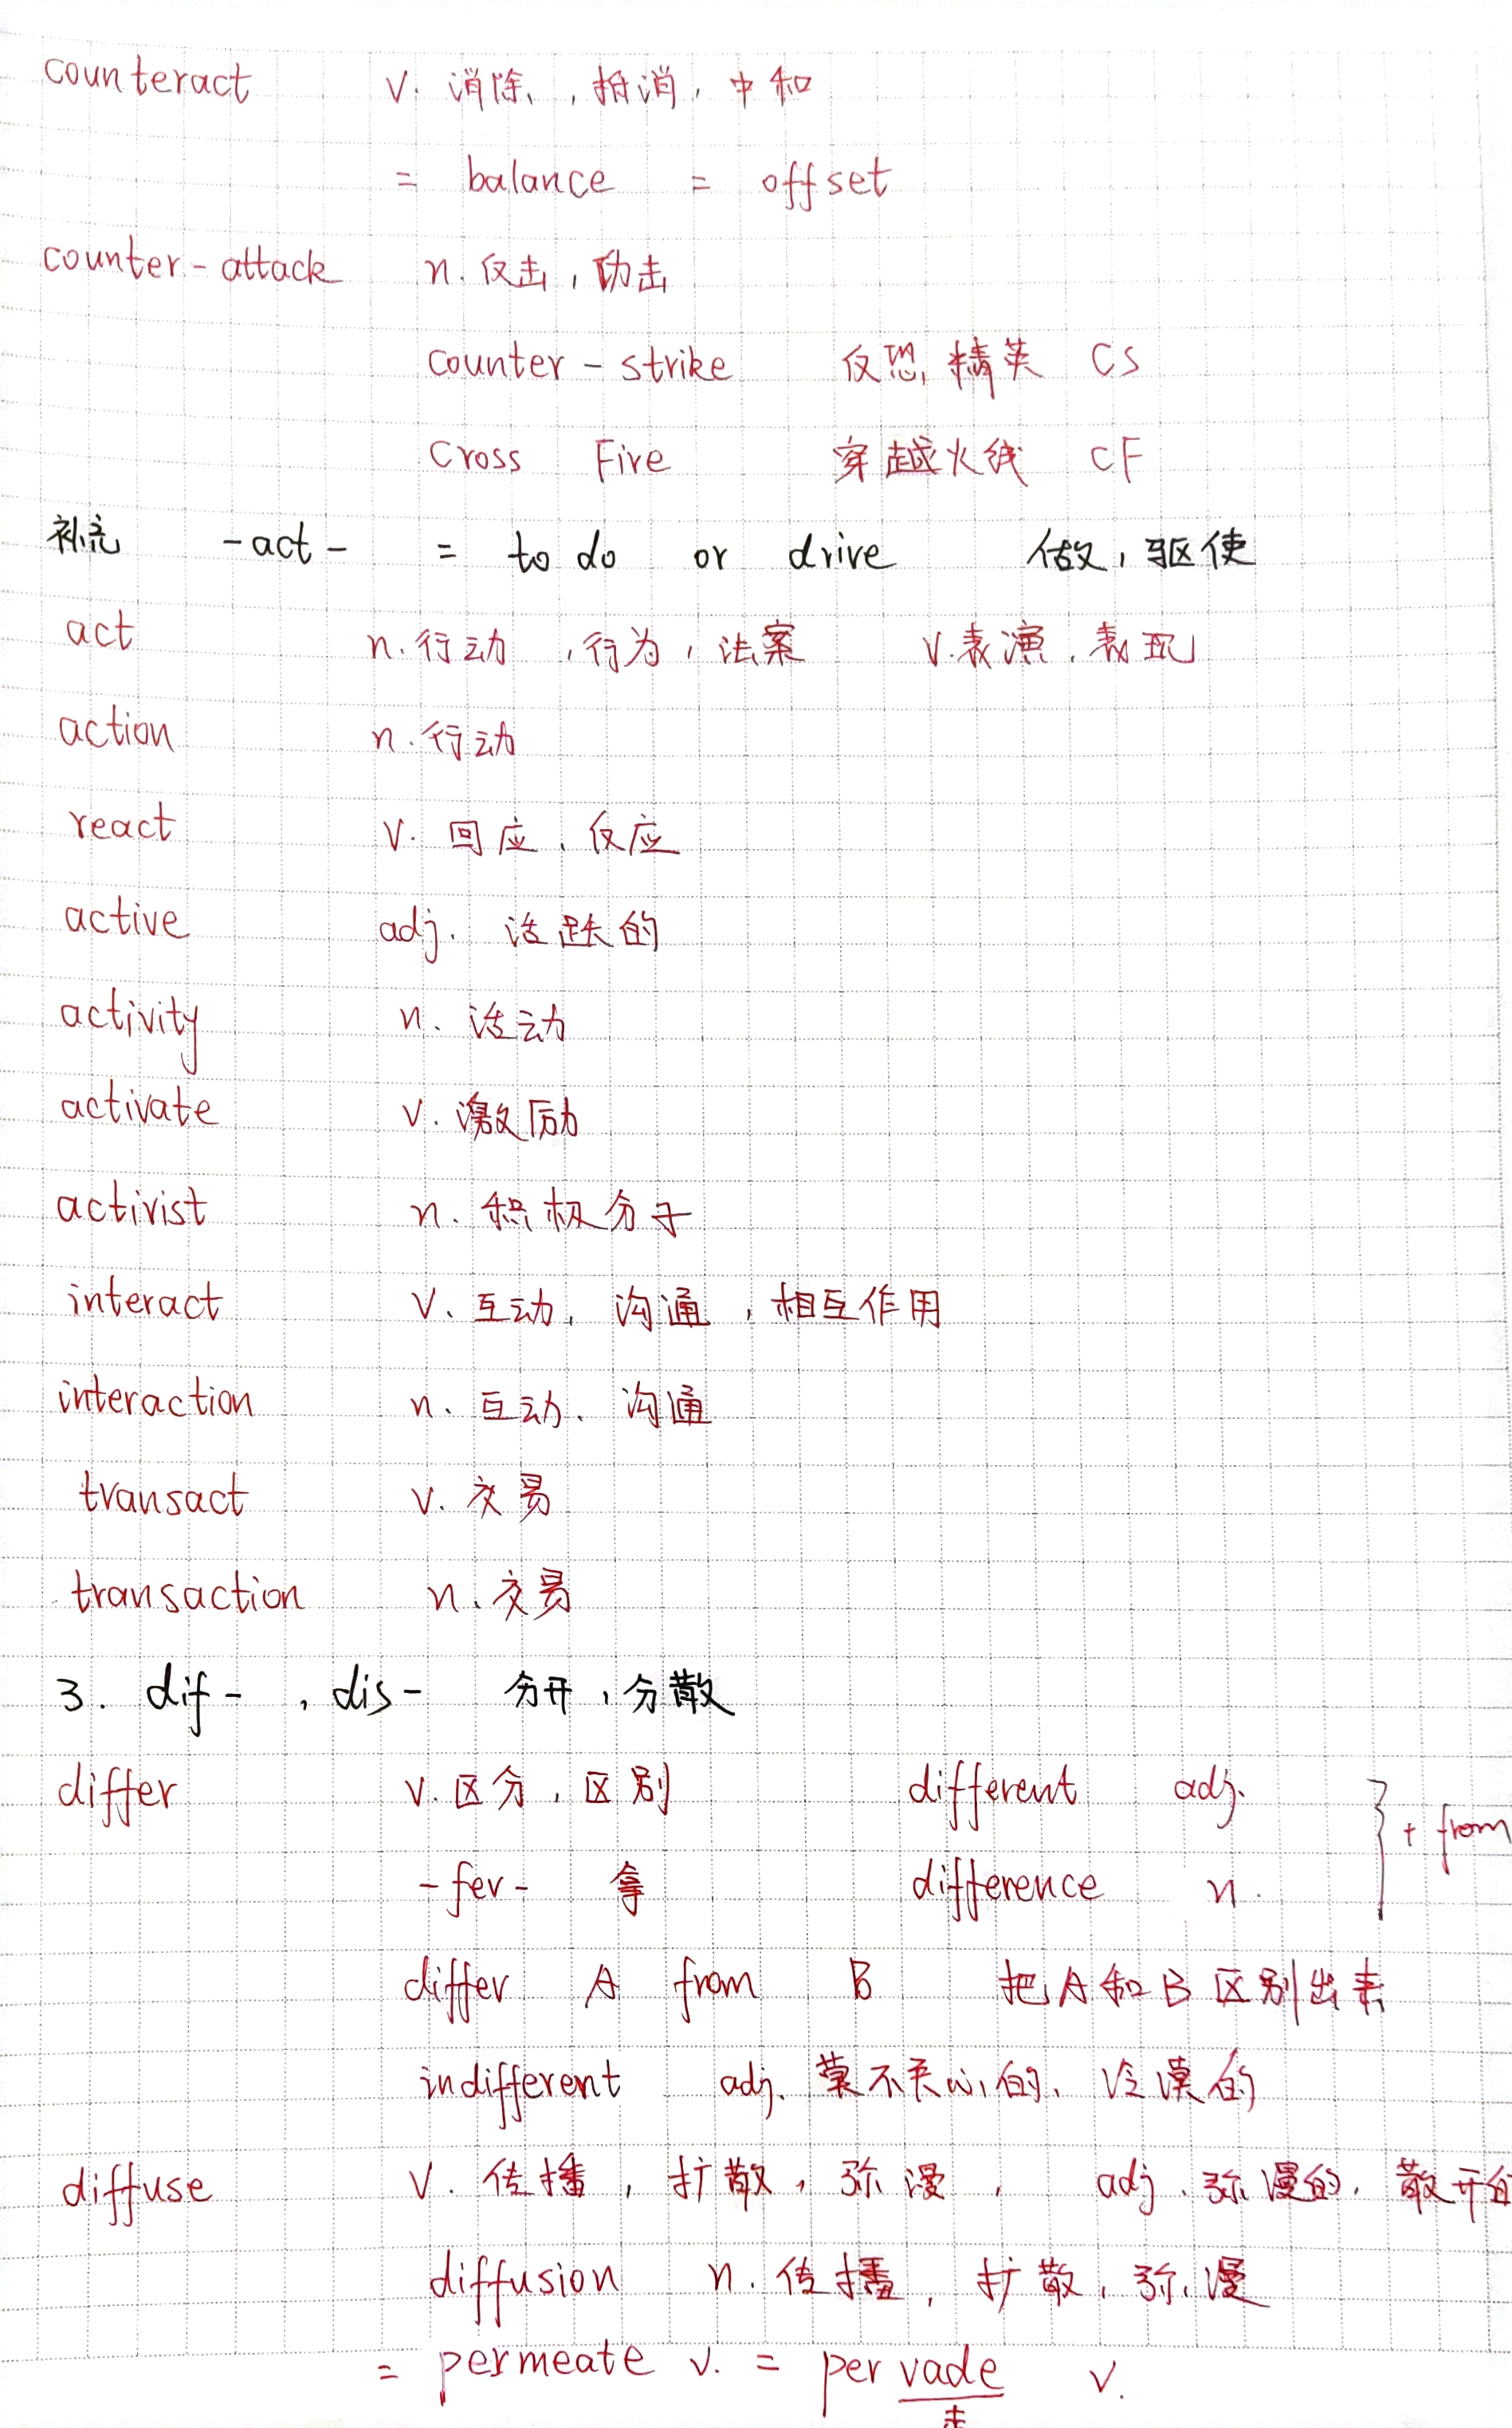 counteract v. 消除,抵消,中和
= balance = offset
counter-attack n. 反击,功击
counter-strike 反恐精英 CS
Cross Fire 穿越火线 CF
补充 -act- = to do or drive 做,驱使
act n. 行动,行为,法案 v. 表演,表现
action n. 行动
react v. 回应、反应
active adj. 活跃的
activity n. 活动
activate v. 激励
activist n. 积极分子
interact v. 互动,沟通,相互作用
interaction n. 互动、沟通
transact v. 交易
transaction n. 交易
3. dif-,dis- 分开,分散
differ v. 区分,区别 different adj. } + from
-fer- 拿 difference n.
differ A from B 把A和B区别出来
indifferent adj. 莫不关心的、冷漠的
diffuse v. 传播,扩散,弥漫, adj. 弥漫的,散开的
diffusion n. 传播,扩散,弥漫
= permeate v. = pervade v.
走